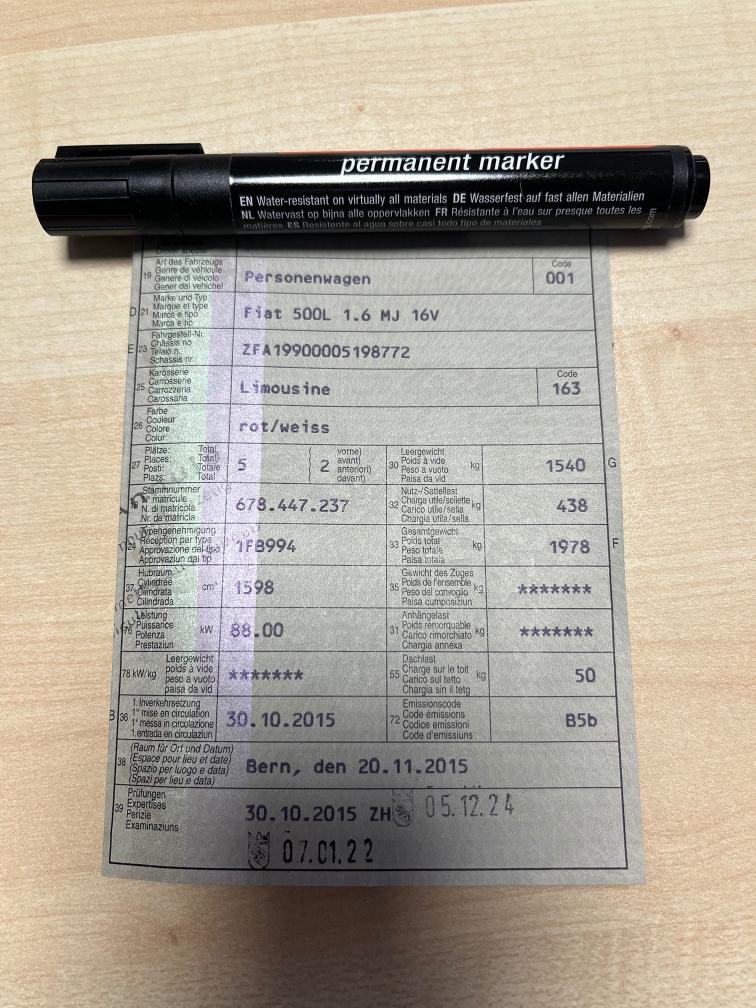 permanent marker
EN Water-resistant on virtually all materials DE Wasserfest auf fast allen Materialien
NL Watervast op bijna alle oppervlakken FR Résistante à l'eau sur presque toutes les
matières ES Resistente al agua sobre casi todo tipo de materiales
.com
19 Art des Fahrzeugs
Genre de véhicule
Genere di veicolo
Gener dal vehichel
Personenwagen
Code
001
D 21 Marke und Typ
Marque et type
Marca e tipo
Marca e tip
Fiat 500L 1.6 MJ 16V
E 23 Fahrgestell-Nr.
Châssis no
Telaio n.
Schassis nr.
ZFA19900005198772
25 Karosserie
Carrosserie
Carrozzeria
Carossaria
Limousine
Code
163
26 Farbe
Couleur
Colore
Colur
rot/weiss
27 Plätze: Total
Places: Total
Posti: Totale
Plazs: Total
5
( 2 vorne)
avant)
anteriori)
davant)
30 Leergewicht
Poids à vide
Peso a vuoto
Paisa da vid
kg
1540
G
18 Stammnummer
N° matricule
N. di matricola
Nr. da matricla
678.447.237
32 Nutz-/Sattellast
Charge utile/sellette
Carico utile/sella
Chargia utila/sella
kg
438
24 Typengenehmigung
Réception par type
Approvazione del tipo
Approvaziun dal tip
1FB994
33 Gesamtgewicht
Poids total
Peso totale
Paisa totala
kg
1978
F
37 Hubraum
Cylindrée
Cilindrata
Cilindrada
cm³
1598
35 Gewicht des Zuges
Poids de l'ensemble
Peso del convoglio
Paisa cumposiziun
kg
*******
76 Leistung
Puissance
Potenza
Prestaziun
kW
88.00
31 Anhängelast
Poids remorquable
Carico rimorchiato
Chargia annexa
kg
*******
78 kW/kg
Leergewicht
poids à vide
peso a vuoto
paisa da vid
*******
55 Dachlast
Charge sur le toit
Carico sul tetto
Chargia sin il tetg
kg
50
B 36 1. Inverkehrsetzung
1re mise en circulation
1a messa in circolazione
1. entrada en circulaziun
30.10.2015
72 Emissionscode
Code émissions
Codice emissioni
Code d'emissiuns
B5b
38 (Raum für Ort und Datum)
(Espace pour lieu et date)
(Spazio per luogo e data)
(Spazi per lieu e data)
Bern, den 20.11.2015
39 Prüfungen
Expertises
Perizie
Examinaziuns
30.10.2015 ZH
05.12.24
07.01.22